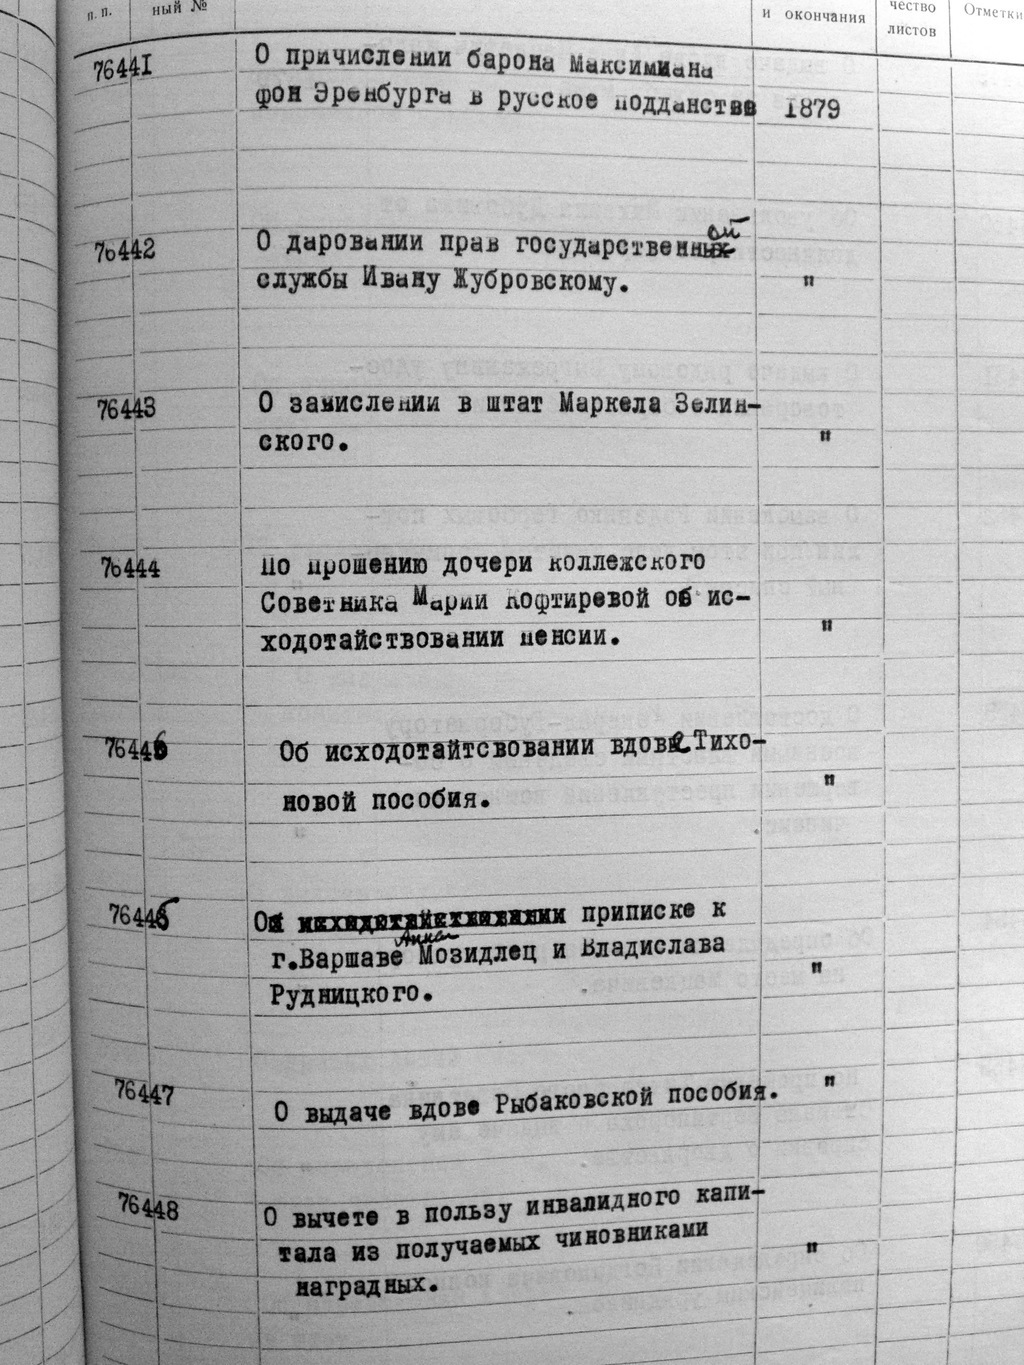 п. п.
ный №
и окончания
чество
листов
Отметки
76441
О причислении барона Максимиана
фон Эренбурга в русское подданство 1879
76442
О даровании прав государственной
службы Ивану Жубровскому. "
76443
О зачислении в штат Маркела Зелин-
ского. "
76444
По прошению дочери коллежского
Советника Марии Кофтиревой об ис-
ходотайствовании пенсии. "
76446
Об исходотайтсвовании вдове Тихо-
новой пособия. "
76445
О приписке к
г.Варшаве Анны Мозидлец и Владислава
Рудницкого. "
76447
О выдаче вдове Рыбаковской пособия. "
76448
О вычете в пользу инвалидного капи-
тала из получаемых чиновниками
наградных. "